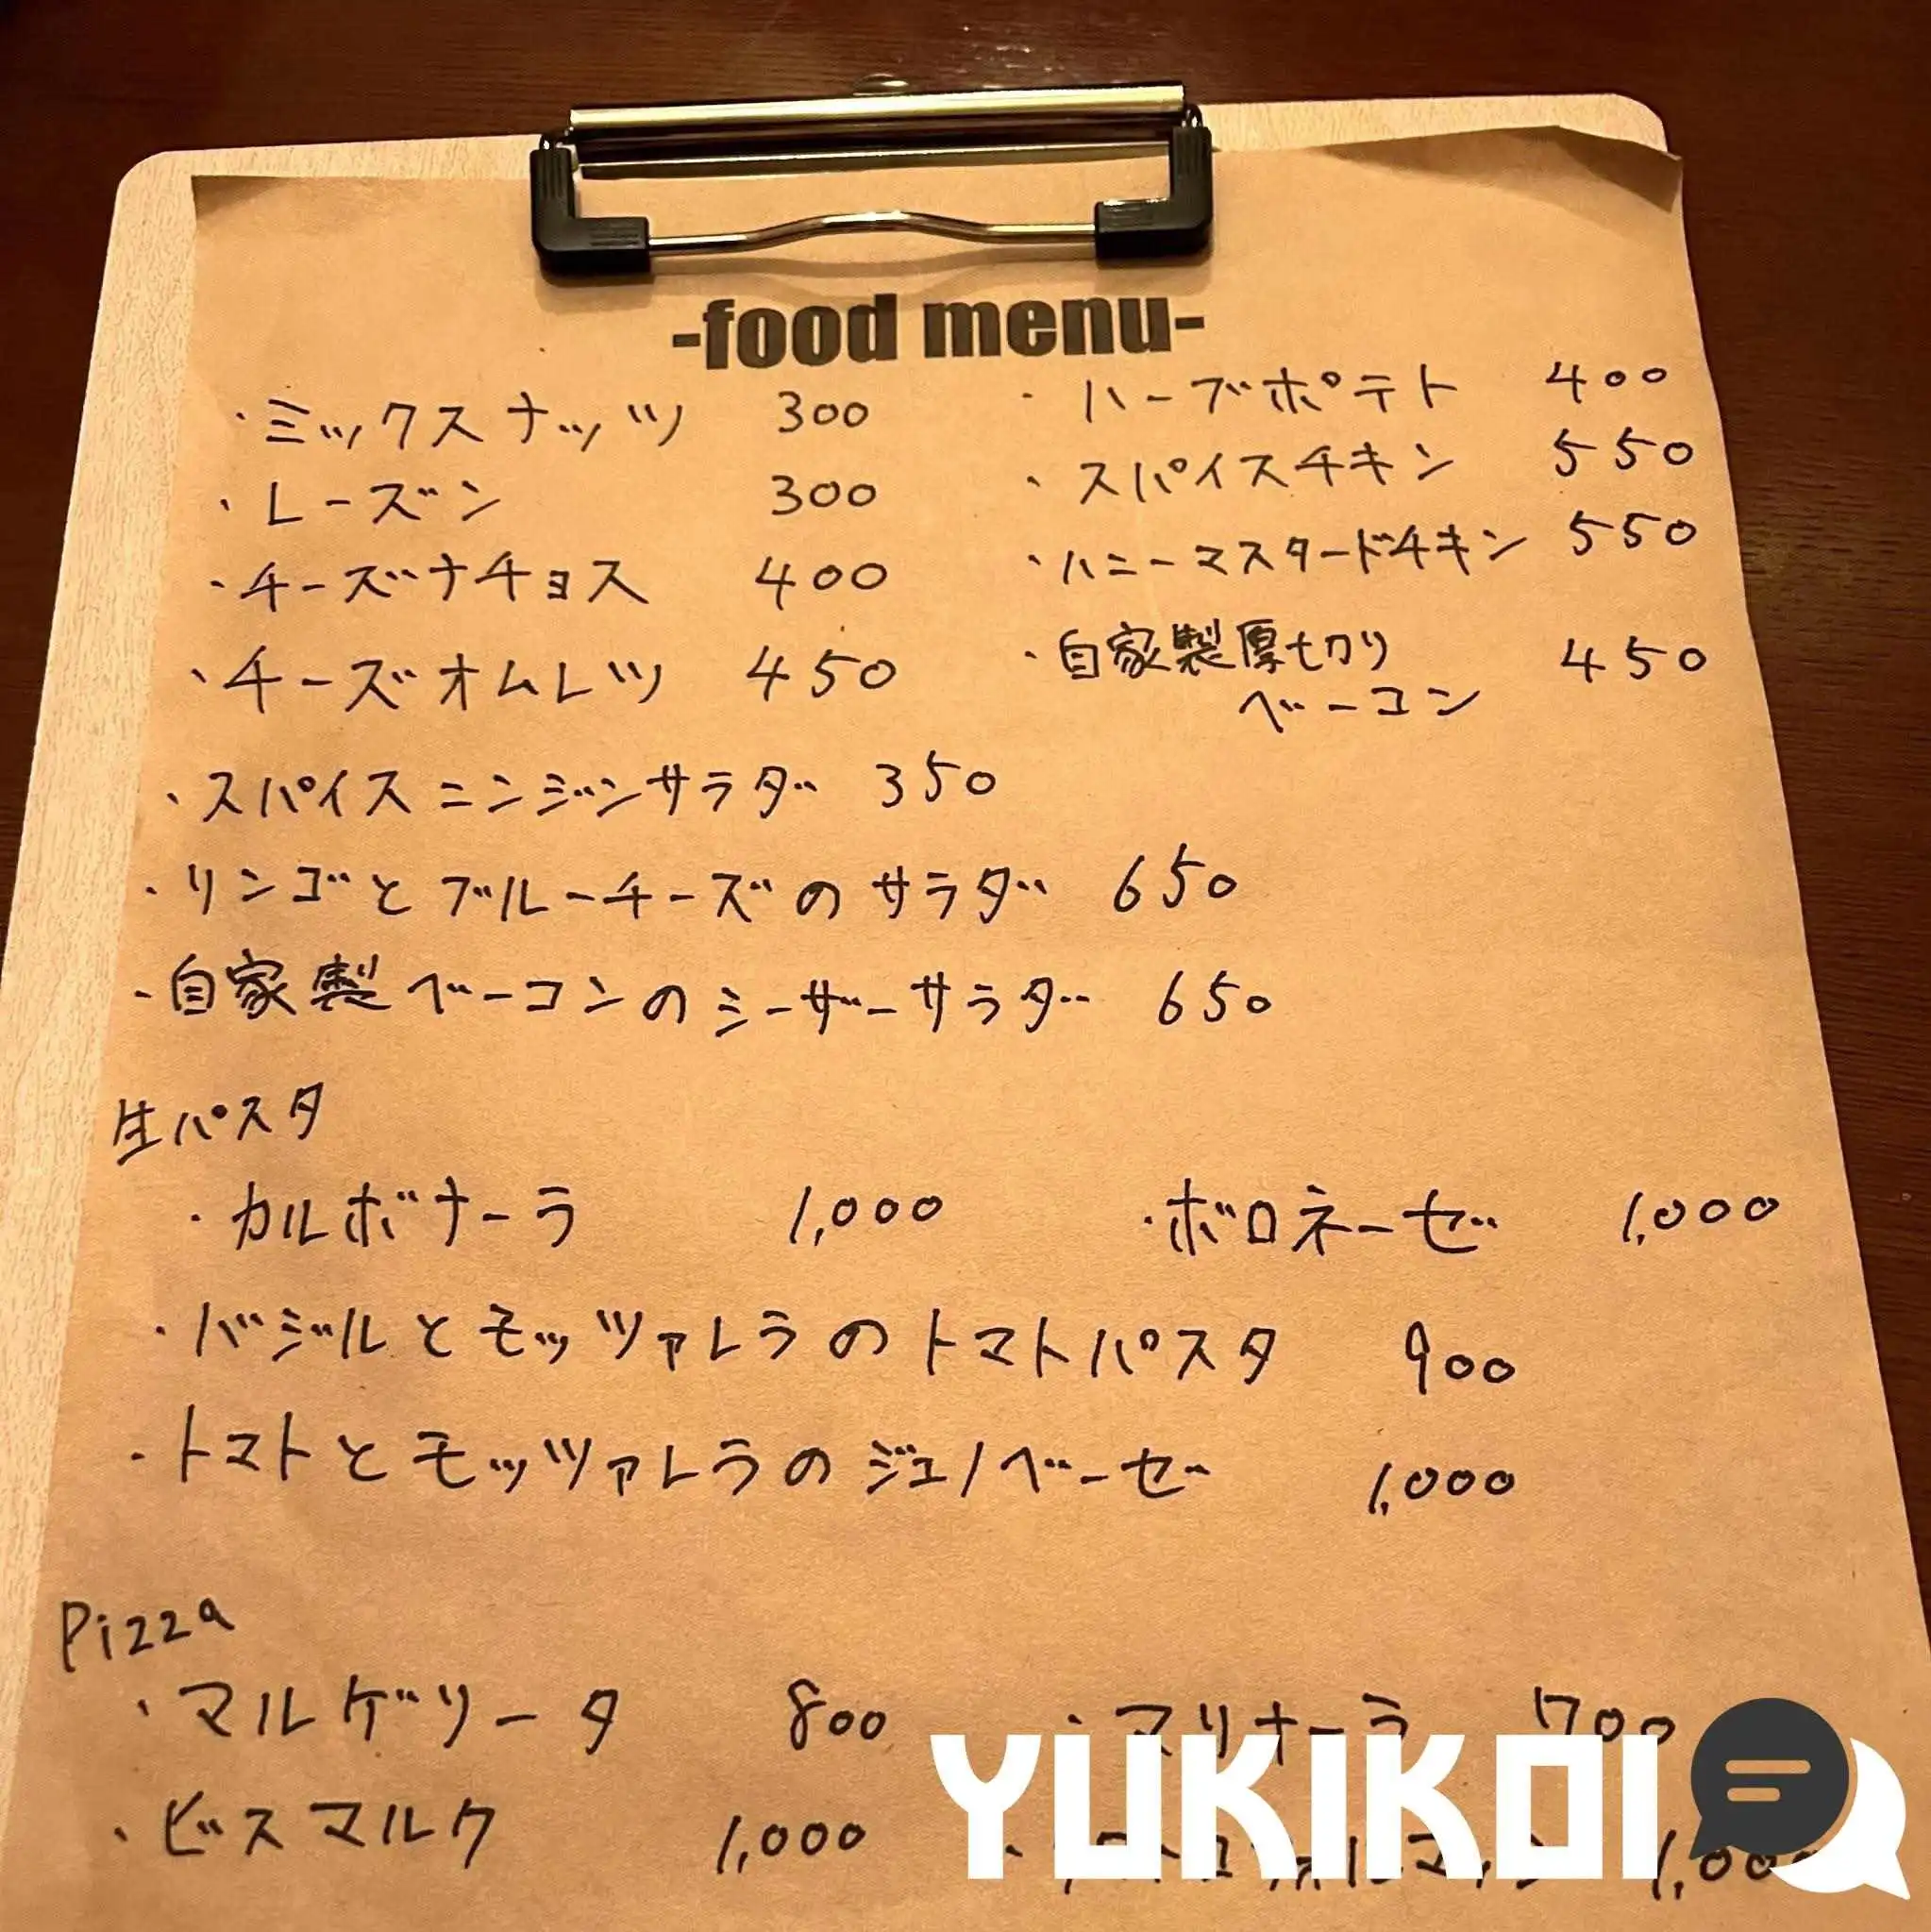 -food menu-
・ミックスナッツ 300
・ハーブポテト 400
・レーズン 300
・スパイスチキン 550
・チーズナチョス 400
・ハニーマスタードチキン 550
・チーズオムレツ 450
・自家製厚切り
ベーコン 450
・スパイスニンジンサラダ 350
・リンゴとブルーチーズのサラダ 650
・自家製ベーコンのシーザーサラダ 650
生パスタ
・カルボナーラ 1,000
・ボロネーゼ 1,000
・バジルとモッツァレラのトマトパスタ 900
・トマトとモッツァレラのジェノベーゼ 1,000
Pizza
・マルゲリータ 800
・マリナーラ 700
YUKIKOI
・ビスマルク 1,000